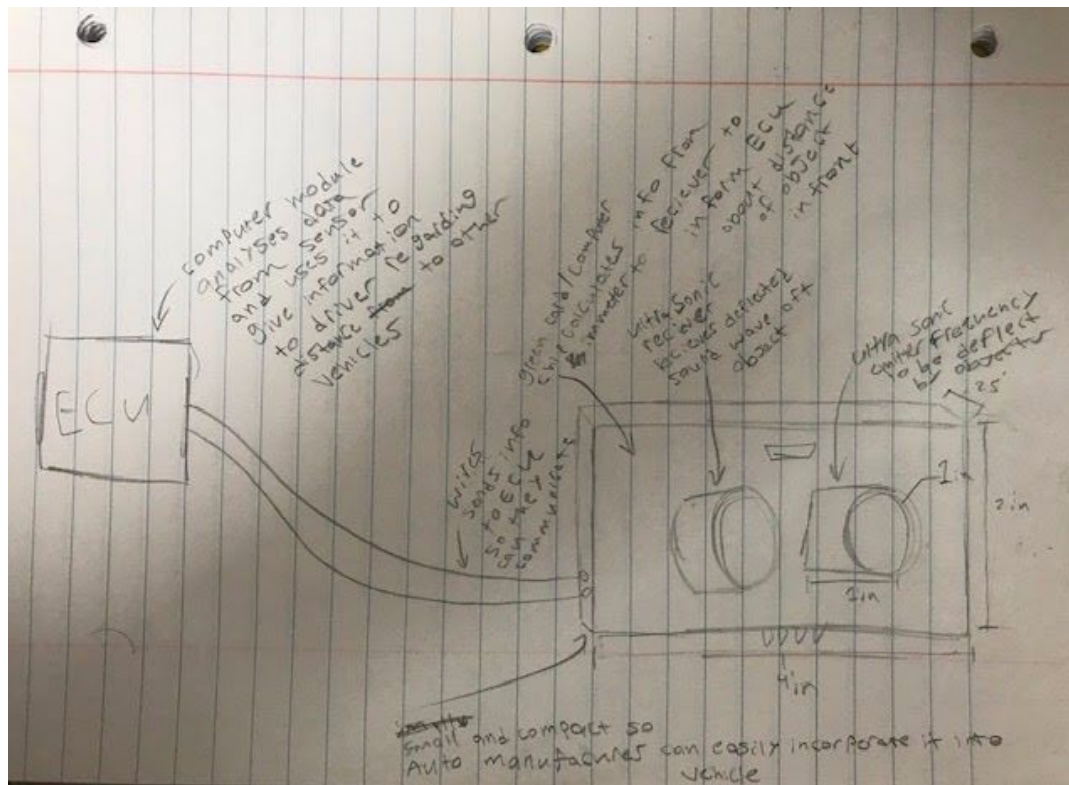 computer module
analyses data
from sensor
and uses it to
give information
to driver regarding
distance from to other
vehicles
ECU
wires
sends info
to ECU
so they
can
communicate
green card/computer
chip calculates info from
emmiter to reciever to
inform ECU
about distance
of object
in front
ultra sonic
reciever
recieves deflected
sound wave off
object
ultra sonic
emiter frequency
to be deflect
by objects
.25"
1in
2in
1in
4in
small and compact so
Auto manufactures can easily incorporate it into
vehicle